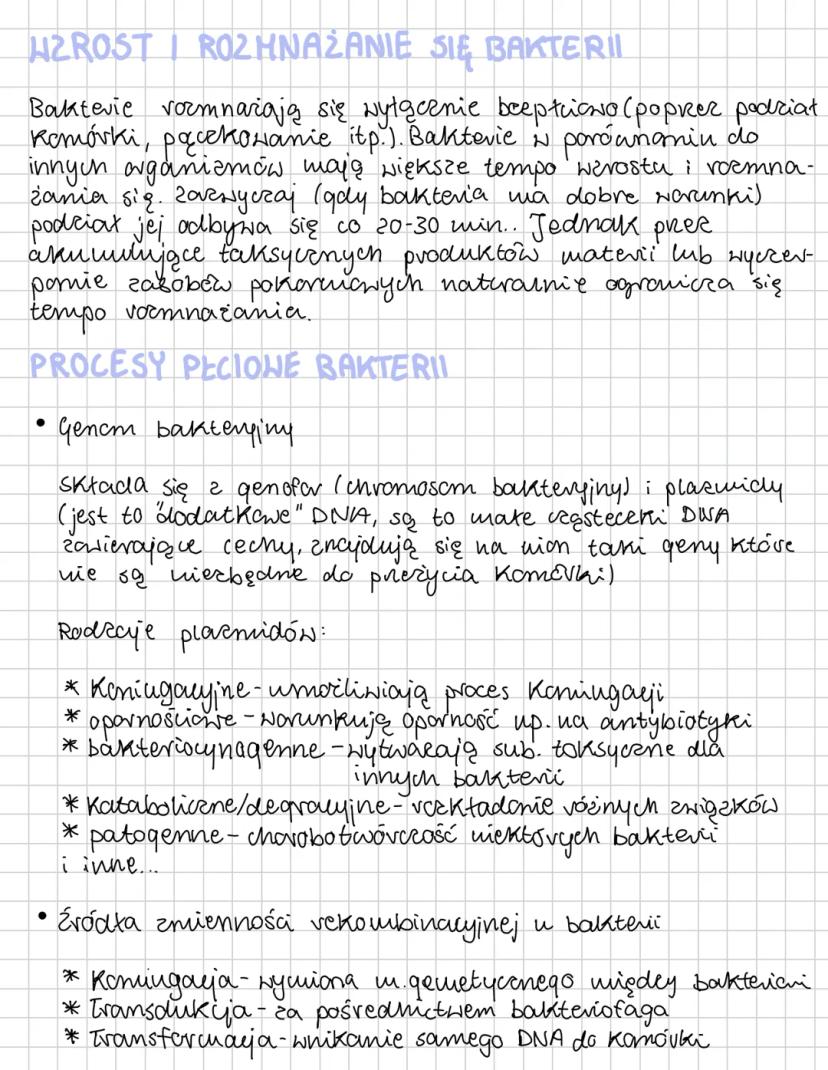 WZROST I ROZMNAŻANIE SIĘ BAKTERII
Bakterie rozmnażają się wyłącznie bezpłciowo (poprzez podział
komórki, pączkowanie itp.). Bakterie w porównaniu do
innych organizmów mają większe tempo wzrostu i rozmna-
żania się. Zazwyczaj (gdy bakteria ma dobre warunki)
podział jej odbywa się co 20-30 min.. Jednak przez
akumulujące taksycznych produktów materii lub wyczer-
panie zasobów pokarmowych naturalnie ogranicza się
tempo rozmnażania.
PROCESY PŁCIOWE BAKTERII
• Genom bakteryjny
Składa się z genofor (chromosom bakteryjny) i plazmidy
(jest to "dodatkowe" DNA, są to małe cząsteczki DNA
zawierające cechy, znajdują się na nion taki geny które
nie są niezbędne do przeżycia komórki)
Rodzaje plazmidów:
* Koniugacyjne - umożliwiają proces koniugacji
* opornościowe - warunkują oporność np. na antybiotyki
* bakteriocynogenne - wytwarzają sub. toksyczne dla
innych bakterii
* Kataboliczne/degracyjne - rozkładanie różnych związków
* patogenne - chorobotwórczość niektórych bakterii
i inne...
• Źródła zmienności rekombinacyjnej u bakterii
* Koniugacja - wymiana m.genetycznego między bakteriami
* Transdukcja - za pośrednictwem bakteriofaga
* Transformacja - wnikanie samego DNA do komórki